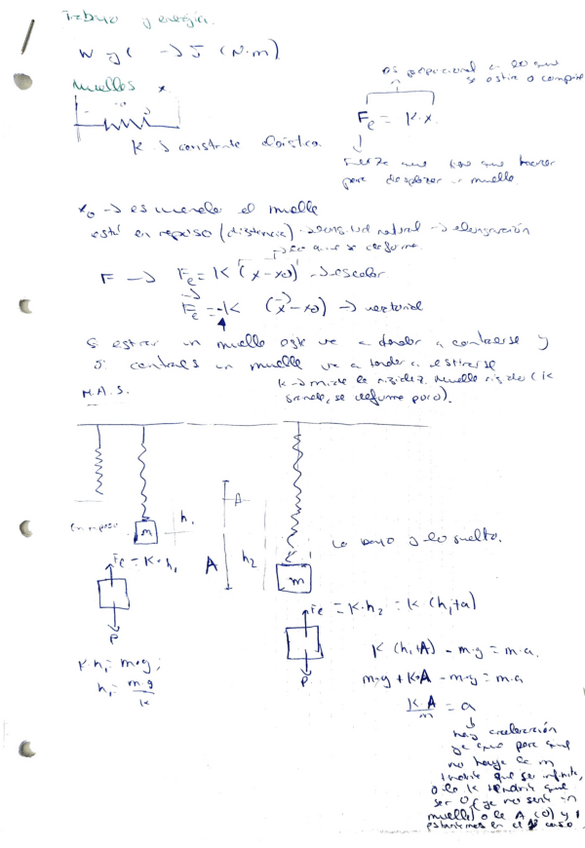 Trabajo y energía.
W y E → J (N·m)
Muelles x.
es proporcional a lo que
se estira o comprime
Fe = K·x.
K → constante elástica.
Fuerza que hay que hacer
para desplazar un muelle.
x0 → es cuando el muelle
está en reposo (distancia) longitud natural → elongación
lo que se deforma.
F → Fe = K (x-x0) → escalar
Fe = -K (x-x0) → vectorial
Si estiras un muelle este va a tender a contraerse y
si contraes un muelle va a tender a estirarse
K → mide la rigidez. Muelle rígido (K
grande, se deforma poco).
M.A.S.
en reposo
m
h1
A
A
h2
m
Lo bajo y lo suelto.
Fe = K·h1
P
Fe = K·h2 = K (h1+a)
P
K·h1 = m·g;
h1 = m·g/K
K (h1+A) - m·g = m·a.
m·g + K·A - m·g = m·a
K·A/m = a
hay aceleración
ya que para que
no haya la m
tendría que ser infinita,
o la K tendría que
ser 0 (ya no sería un
muelle) o la A (0) y
estaríamos en el 1º caso.